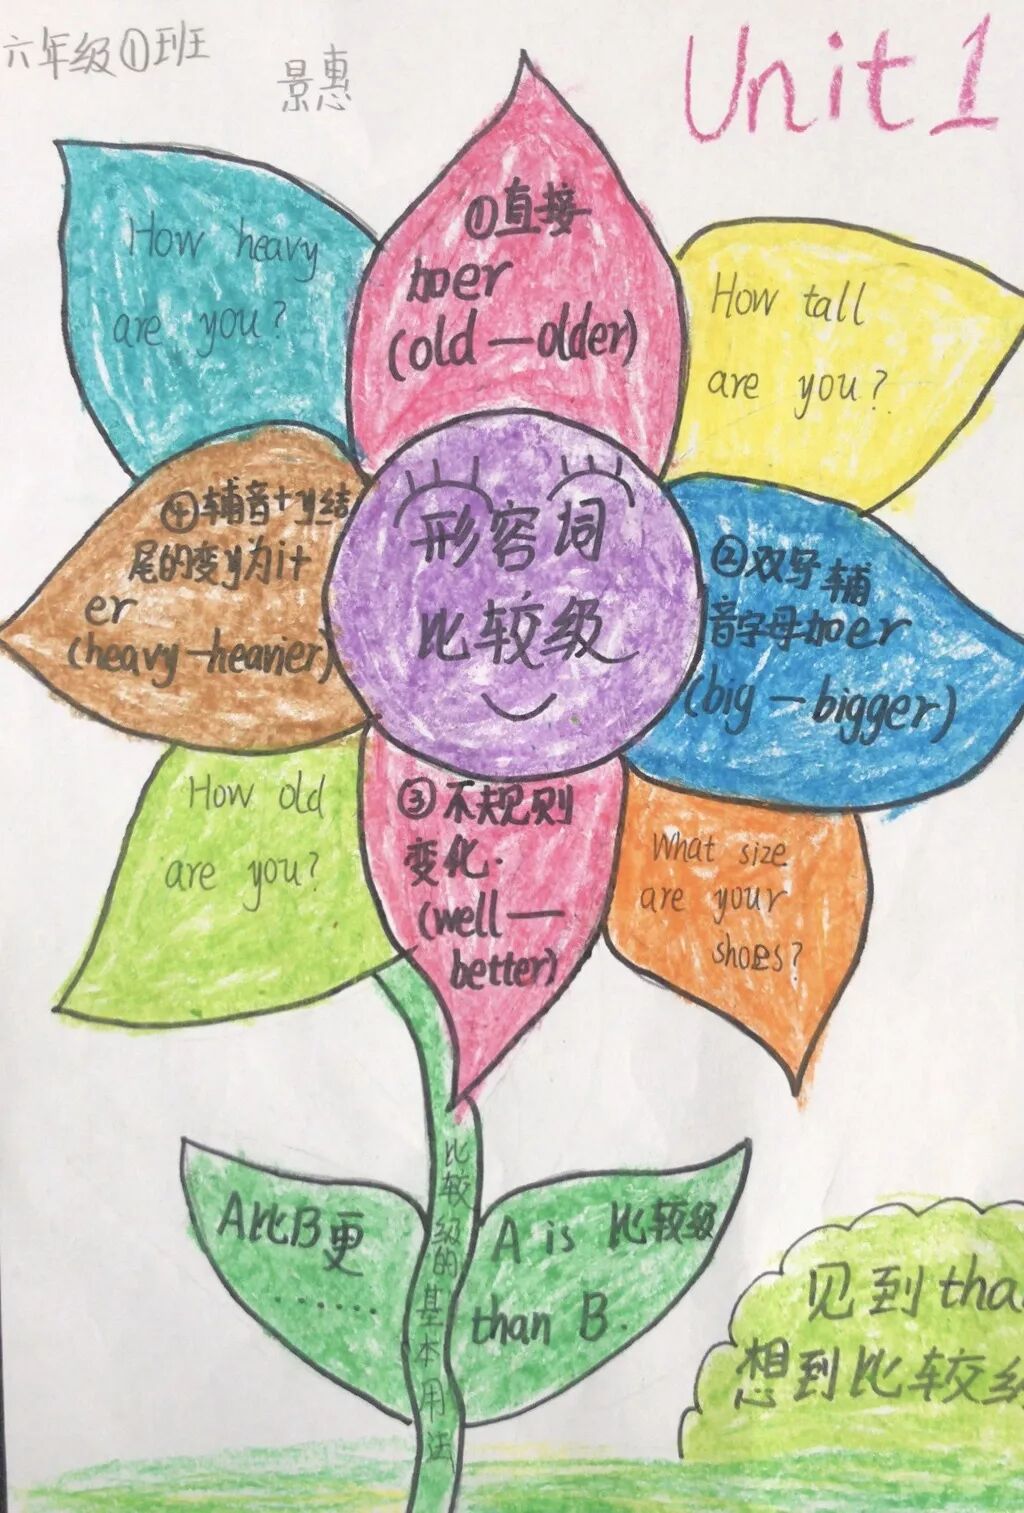 六年级①班
景惠
Unit 1
How heavy
are you?
①直接
加er
(old—older)
How tall
are you?
④辅音+y结
尾的变y为i+
er
(heavy—heavier)
形容词
比较级
②双写辅
音字母加er
(big—bigger)
How old
are you?
③不规则
变化.
(well—
better)
What size
are your
shoes?
比较级的基本用法
A比B更
......
A is 比较级
than B.
见到tha
想到比较